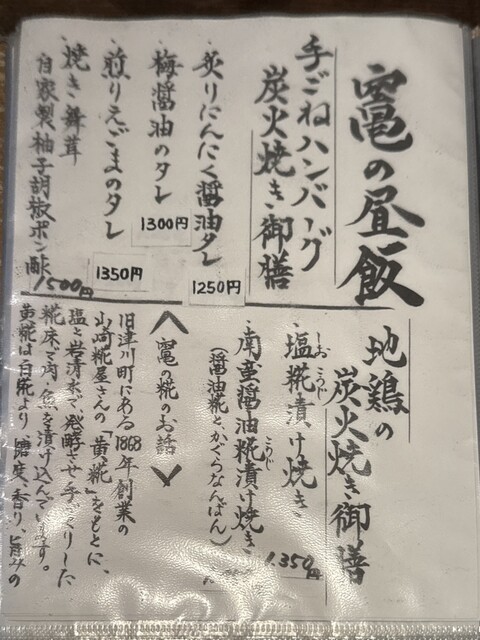 竃の昼飯
手ごねハンバーグ
炭火焼き御膳
・炙りにんにく醤油タレ
1250円
・梅醤油のタレ
1300円
・煎りえごまのタレ
1350円
・焼き舞茸
自家製柚子胡椒ポン酢
1500円
地鶏の
炭火焼き御膳
塩糀漬け焼き
しおこうじ
・南蛮醤油糀漬け焼き
こうじ
(醤油糀とかぐらなんばん)
1.350円
<竃の糀のお話>
旧津川町にある1868年創業の
山崎糀屋さんの「黄糀」をもとに、
塩と岩清水で、発酵させ手づくりした
糀床で肉・魚を漬け込んでいます。
黄糀は白糀より、磨度、香り、旨みの